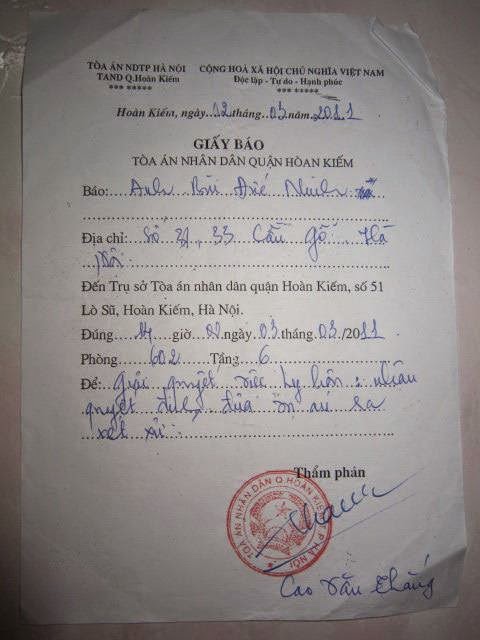 TÒA ÁN NDTP HÀ NÓI CỘNG HOÀ XÃ HỘI CHỦ NGHĨA VIỆT NAM
TAND Q.Hoàn Kiếm Độc lập - Tự do - Hạnh phúc
*** ***** *** *****
Hoàn Kiếm, ngày...02tháng...03năm.2011
GIẤY BÁO
TÒA ÁN NHÂN DÂN QUẬN HÒAN KIẾM
Báo: Anh Bùi Đức Minh
Địa chỉ: Số 31, 33 Cầu Gỗ, Hà
Nội
Đến Trụ sở Tòa án nhân dân quận Hoàn Kiếm, số 51
Lò Sũ, Hoàn Kiếm, Hà Nội.
Đúng 14 giờ 00 ngày 03 tháng 03 /2011
Phòng 602 Tầng 6
Để: Giải quyết việc ly hôn: nhận
quyết định đưa vụ án ra
xét xử.
Thẩm phán
TOÀ ÁN NHÂN DÂN Q.HOÀN KIẾM T.P HÀ NỘI
Cao Văn Thắng